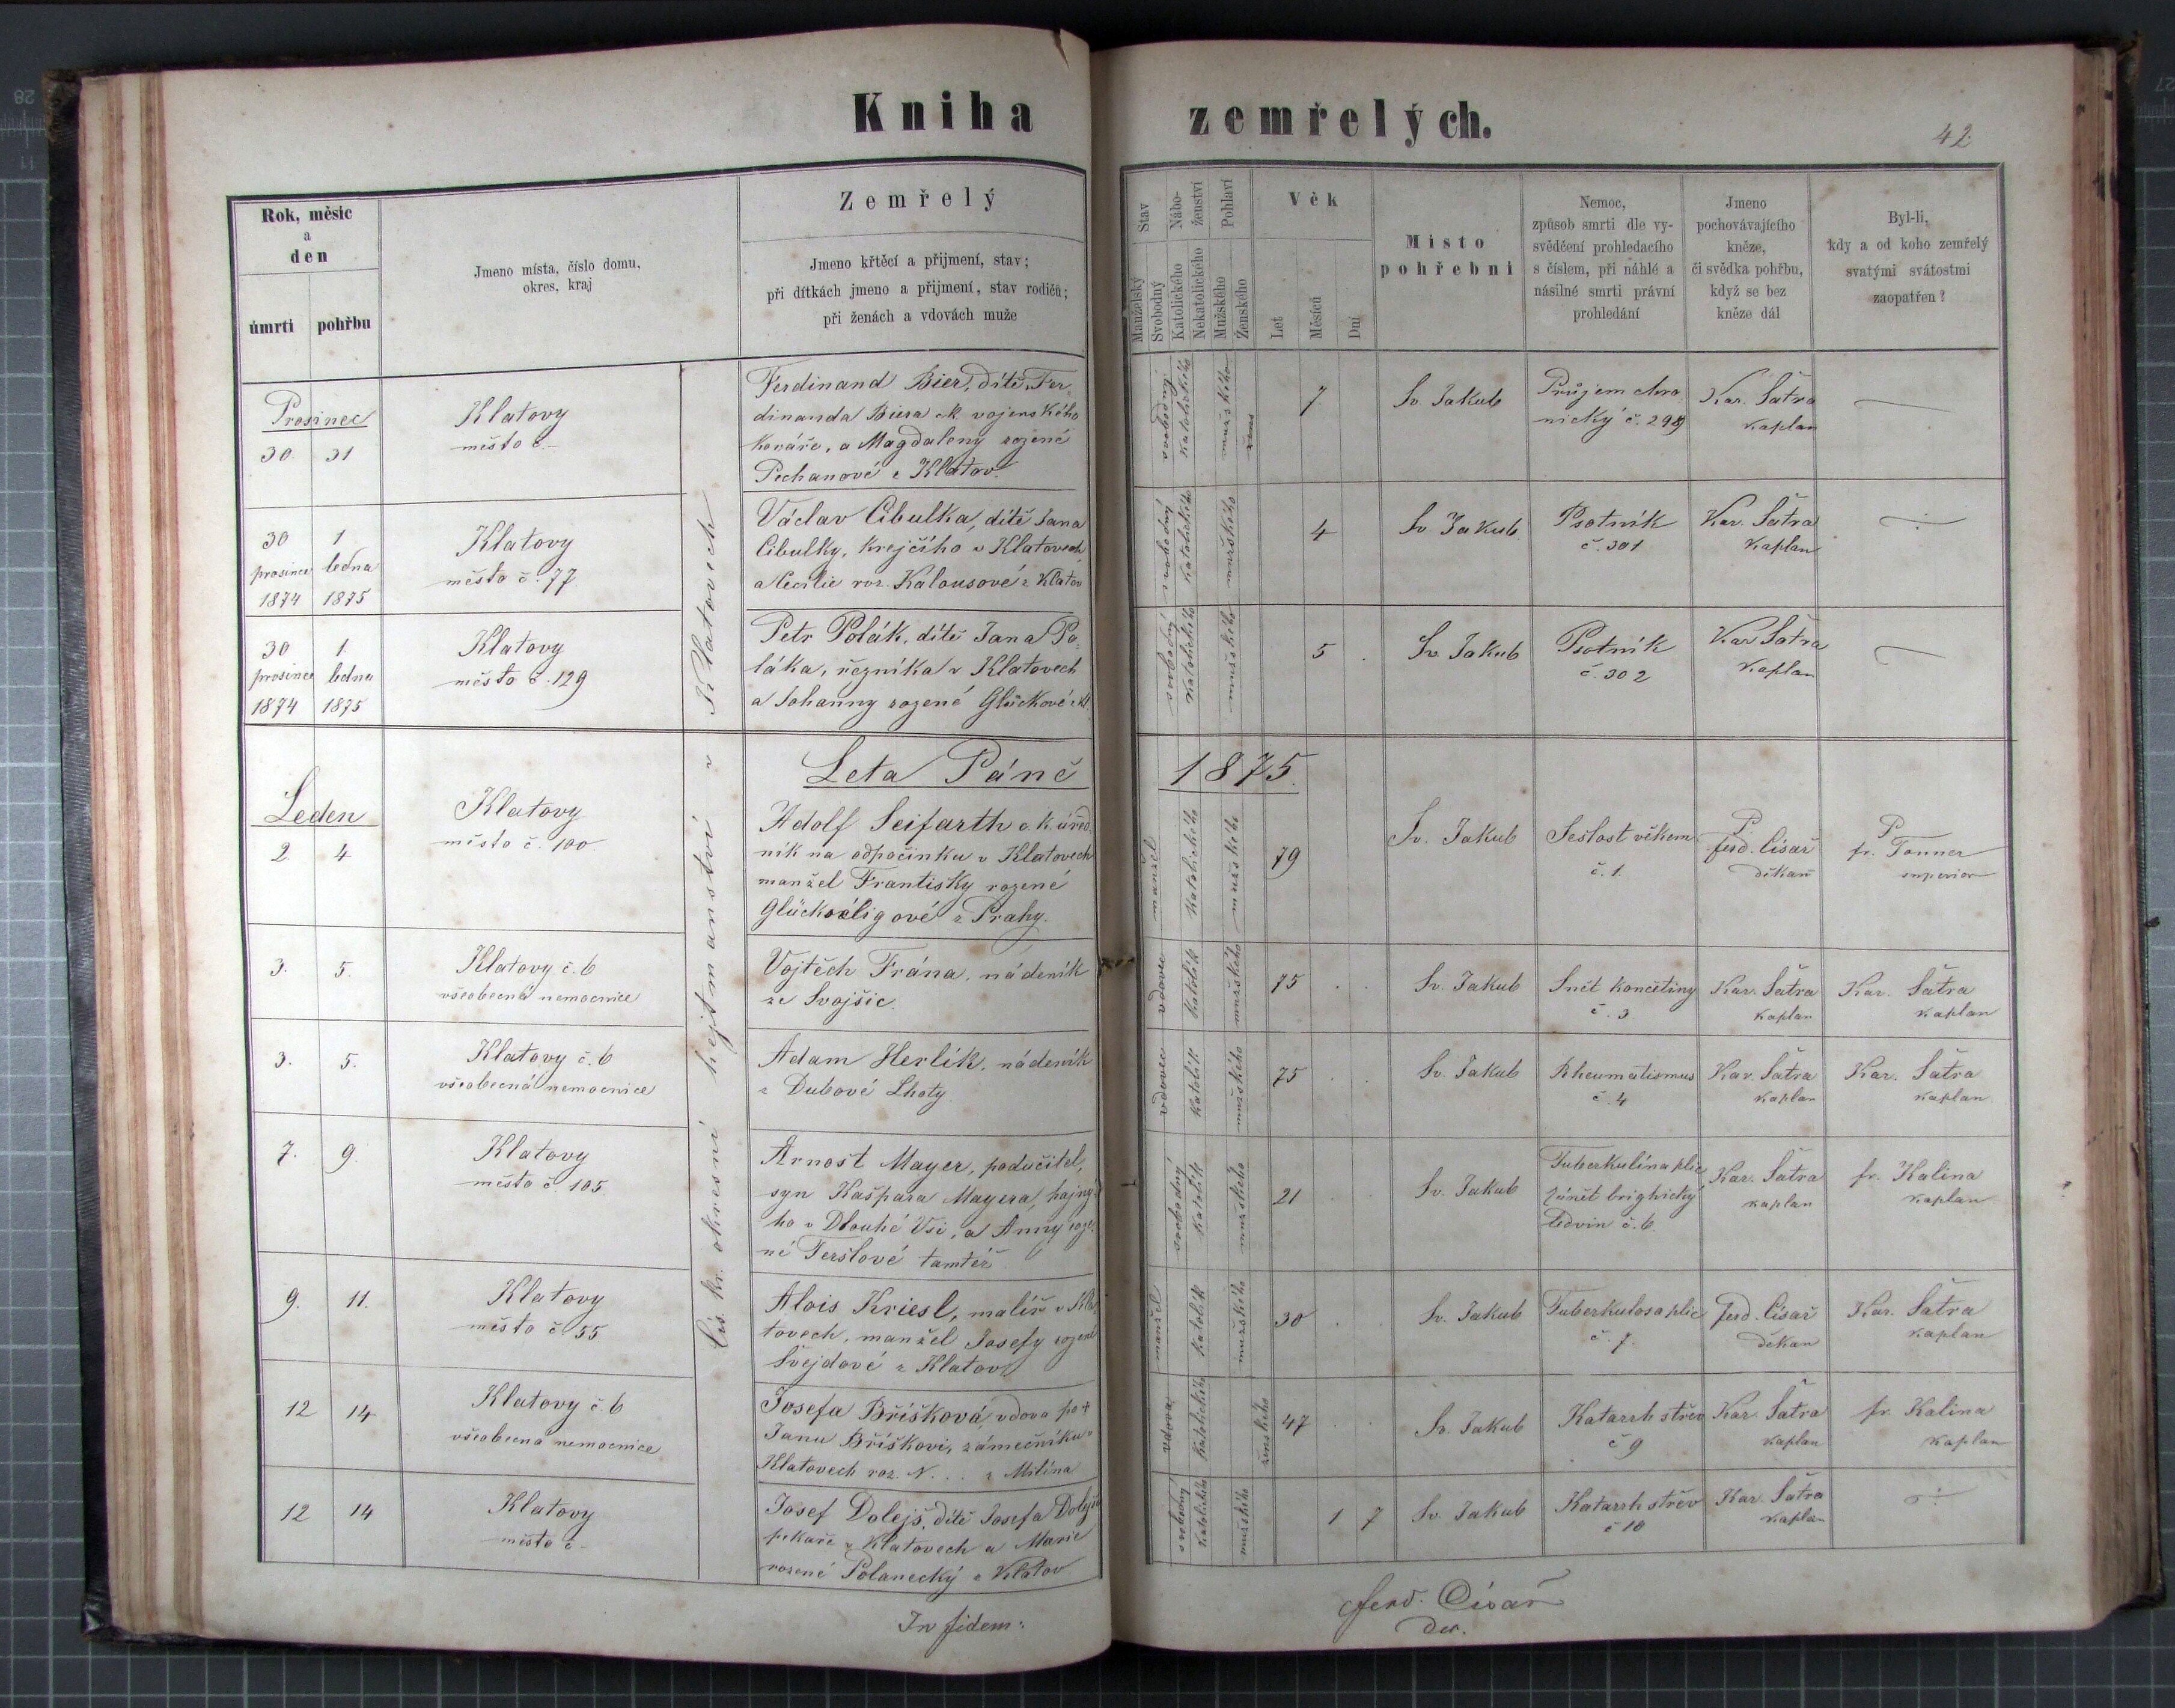 Kniha zemřelých.
42.
Rok, měsíc
a
den
úmrti
pohřbu
Jmeno místa, číslo domu,
okres, kraj
Zemřelý
Jmeno křtěcí a přijmení, stav;
při dítkách jmeno a přijmení, stav rodičů;
při ženách a vdovách muže
Stav
Manželský
Svobodný
Nábo-
ženství
Katolického
Nekatolického
Pohlaví
Mužského
Ženského
Věk
Let
Měsíců
Dní
Místo
pohřební
Nemoc,
způsob smrti dle vy-
svědčení prohledacího
s číslem, při náhlé a
násilné smrti právní
prohledání
Jmeno
pochovávajícího
kněze,
či svědka pohřbu,
když se bez
kněze dál
Byl-li,
kdy a od koho zemřelý
svatými svátostmi
zaopatřen?
Cís. kr. okresní hejtmanství v Klatovech
Prosinec
30. 31
Klatovy
město č. –
Ferdinand Bier, dítě Fer-
dinanda Biera ck vojenského
kováře, a Magdaleny rozené
Pechanové z Klatov.
svobodný
katolického
mužského
7
Sv. Jakub
Průjem chro
nický č. 298
Kar. Šatra
kaplan
30 1
prosince ledna
1874 1875
Klatovy
město č. 77
Václav Cibulka, dítě Jana
Cibulky, krejčího v Klatovech
a Cecilie roz. Kalousové z Klatov
svobodný
katolického
mužského
4
Sv Jakub
Psotník
č. 301
Kar. Šatra
kaplan
30 1.
prosince ledna
1874 1875
Klatovy
město č. 129
Petr Polák, dítě Jana Po-
láka, řezníka v Klatovech
a Johanny rozené Glückové z Kl.
svobodný
katolického
mužského
5
Sv. Jakub
Psotník
č. 302
Kar Šatra
kaplan
Leta Páně 1875.
Leden
2. 4
Klatovy
město č. 100
Adolf Seifarth c. k. úřed-
ník na odpočinku v Klatovech
manžel Františky rozené
Glückseligové z Prahy.
manžel
katolického
mužského
79
Sv. Jakub
Sešlost věkem
č. 1.
P.
ferd. Císař
děkan
P.
fr. Tonner
superior
3. 5.
Klatovy č. 6
všeobecná nemocnice
Vojtěch Frána, nádeník
ze Svojšic.
vdovec
katolík
mužského
75
Sv. Jakub
Snět končetiny
č. 3
Kar. Šatra
kaplan
Kar. Šatra
kaplan
3. 5.
Klatovy č. 6
všeobecná nemocnice
Adam Herlík, nádeník
z Dubové Lhoty.
vdovec
katolík
mužského
75
Sv. Jakub
Rheumatismus
č. 4
Kar. Šatra
kaplan
Kar. Šatra
kaplan
7. 9.
Klatovy
město č 105.
Arnošt Mayer, podučitel,
syn Kašpara Mayera, hajný-
ho v Dlouhé Vsi, a Anny roze-
né Terslové tamtéž.
svobodný
katolík
mužského
21
Sv. Jakub
Tuberkulina plic
Zánět brighický
ledvin č. 6.
Kar. Šatra
kaplan
fr. Kalina
kaplan
9. 11.
Klatovy
město č. 55
Alois Kriesl, malíř v Kla-
tovech, manžel Josefy rozené
Švejdové z Klatov
manžel
katolík
mužského
30
Sv. Jakub
Tuberkulosa plic
č. 7
ferd. Císař
děkan
Kar. Šatra
kaplan
12 14
Klatovy č. 6
všeobecná nemocnice
Josefa Bříšková, vdova po +
Janu Bříškovi, zámečníku v
Klatovech roz. N... z Milína
vdova
katolického
ženského
47
Sv. Jakub
Katarrh střev
č 9
Kar. Šatra
kaplan
fr. Kalina
kaplan
12 14
Klatovy
město č –
Josef Dolejš, dítě Josefa Dolejše
pekaře v Klatovech a Marie
rozené Polanecký z Klatov
svobodný
katolického
mužského
1 7
Sv. Jakub
Katarrh střev
č 10
Kar. Šatra
kaplan
In fidem:
Ferd. Císař
děk.